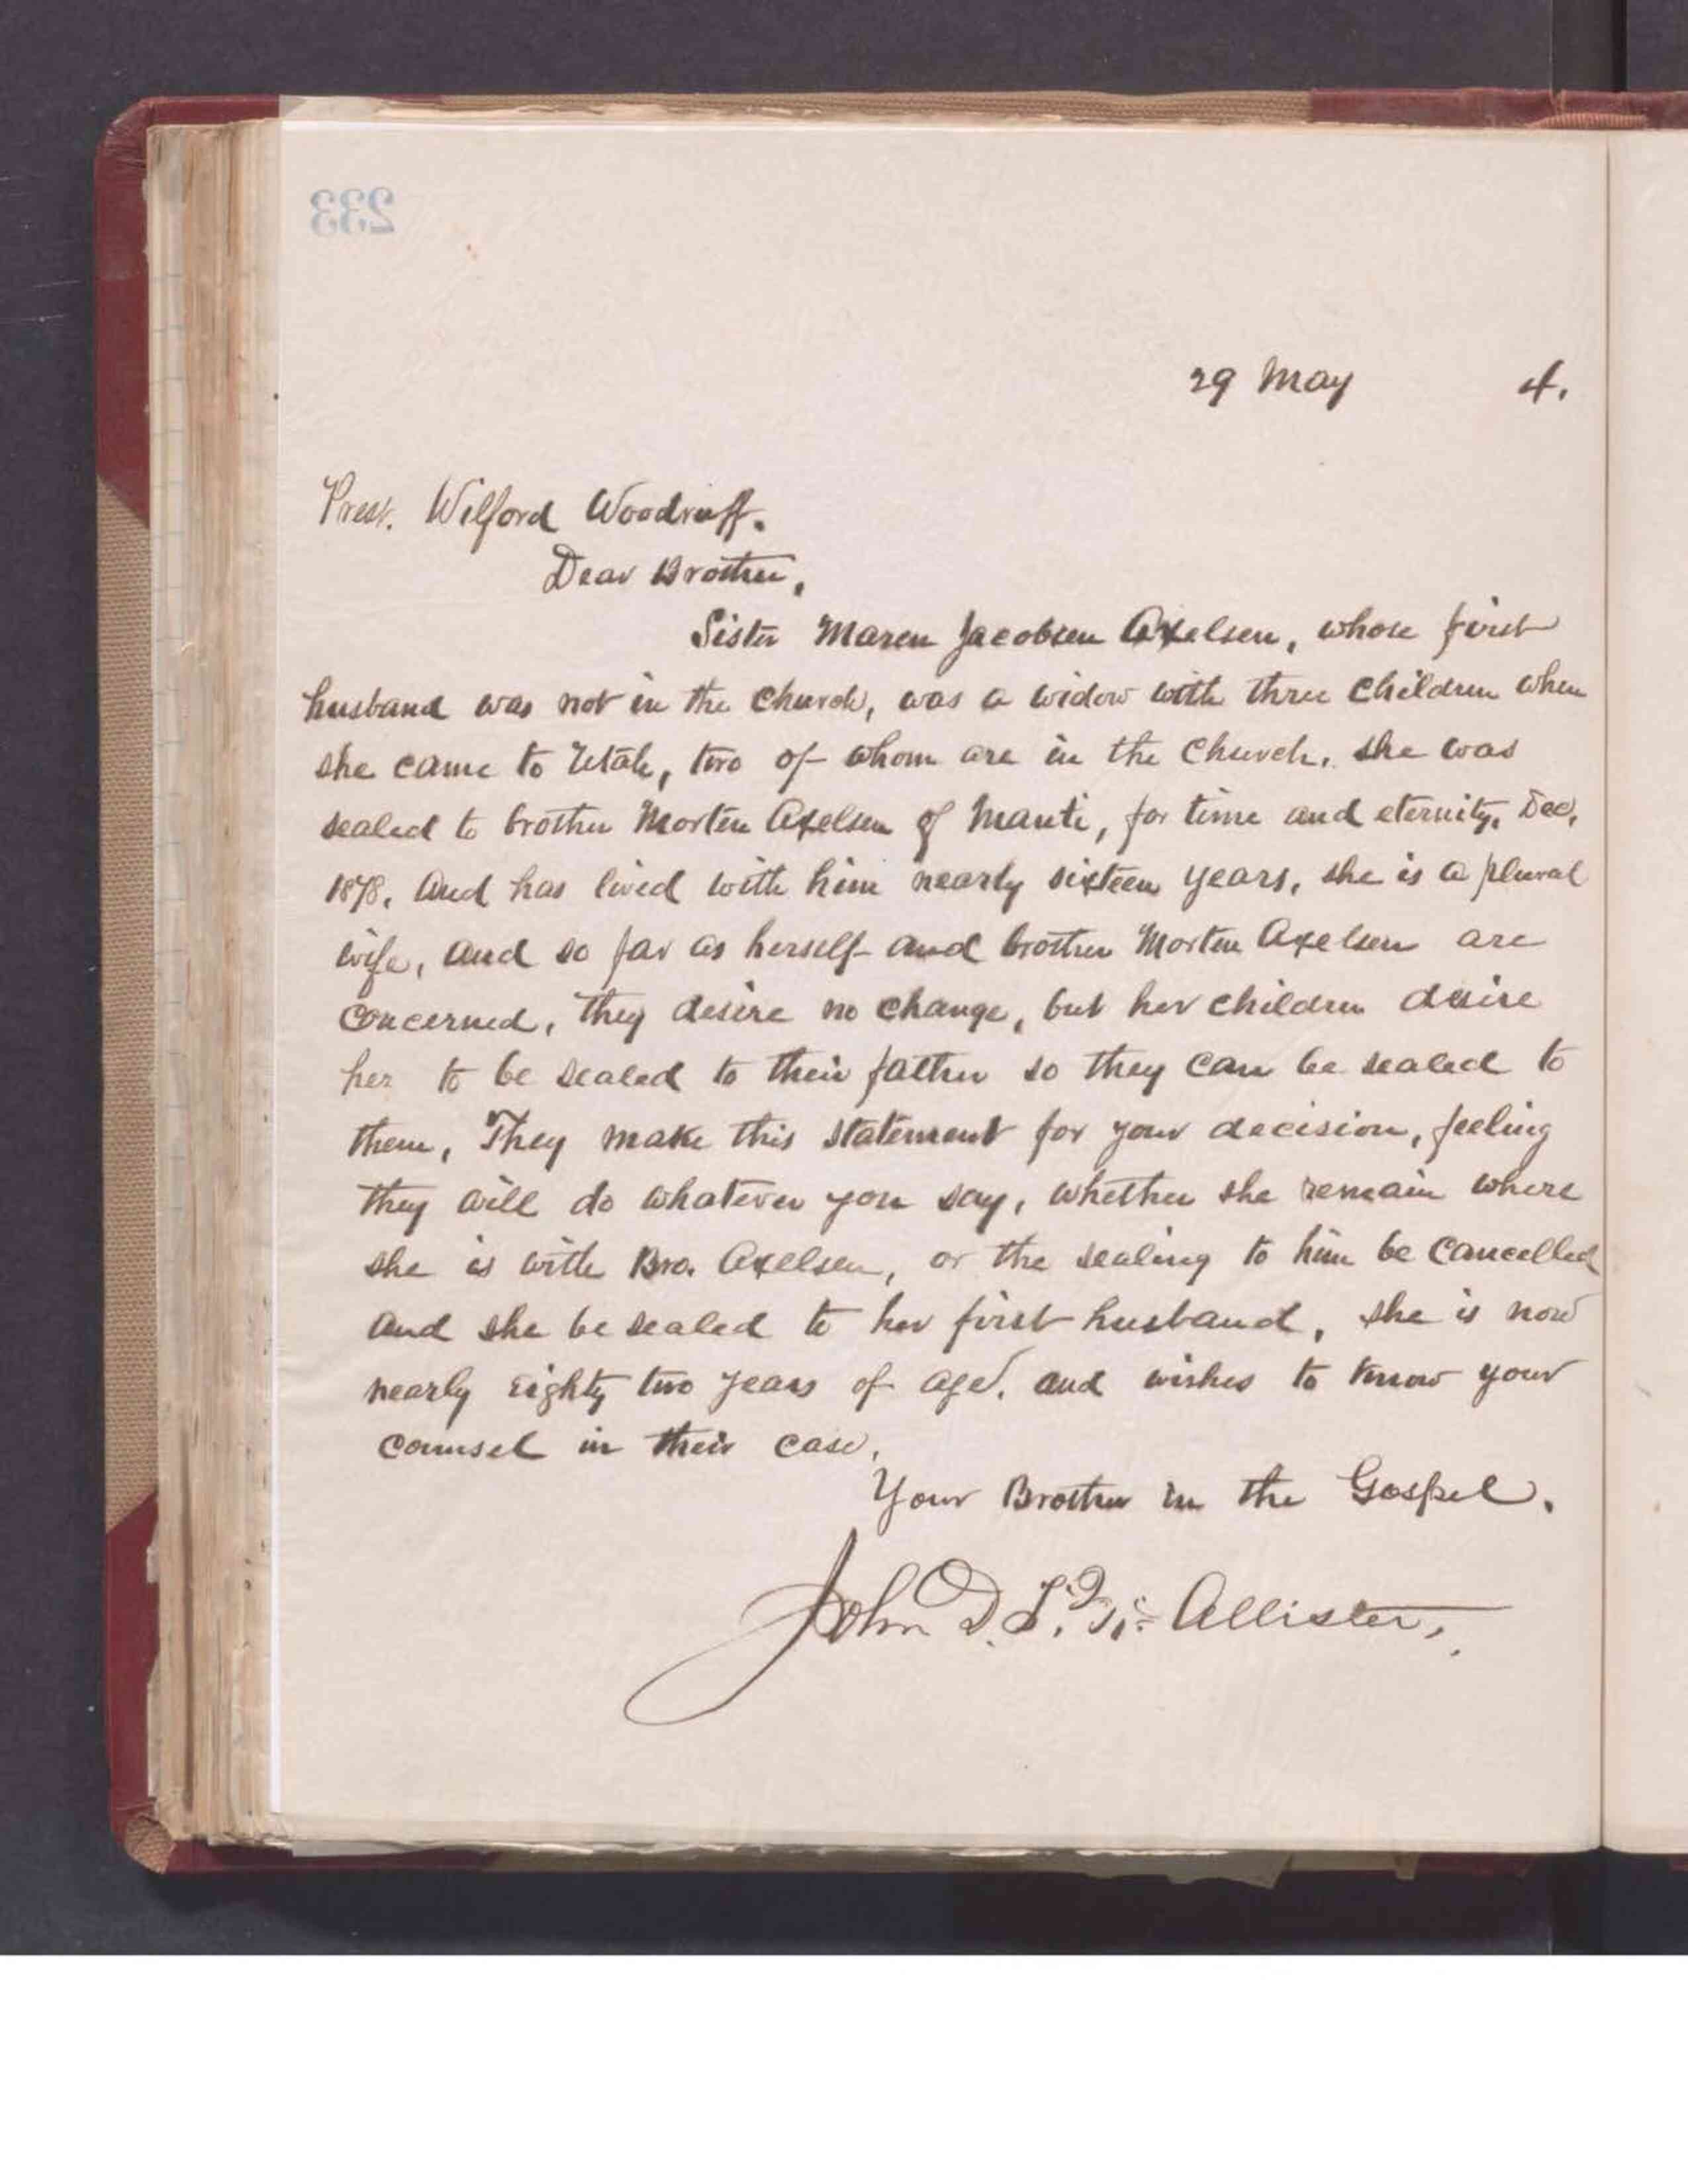 233
29 May 4.
Prest. Wilford Woodruff.
Dear Brother,
Sister Maren Jacobsen Axelsen, whose first
husband was not in the Church, was a widow with three children when
she came to Utah, two of whom are in the Church, she was
sealed to brother Morten Axelsen of Manti, for time and eternity, Dec,
1878, and has lived with him nearly sixteen years, she is a plural
wife, and so far as herself and brother Morten Axelsen are
concerned, they desire no change, but her children desire
her to be sealed to their father so they can be sealed to
them, They make this statement for your decision, feeling
they will do whatever you say, whether she remain where
she is with Bro. Axelsen, or the sealing to him be cancelled
and she be sealed to her first husband, she is now
nearly eighty two years of age, and wishes to know your
counsel in their case,
Your Brother in the Gospel.
John D. T. Mc Allister,